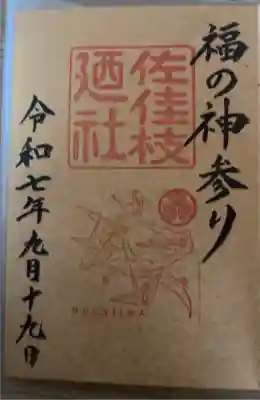 福の神参り
佐佳枝
廼社
令和七年九月十九日